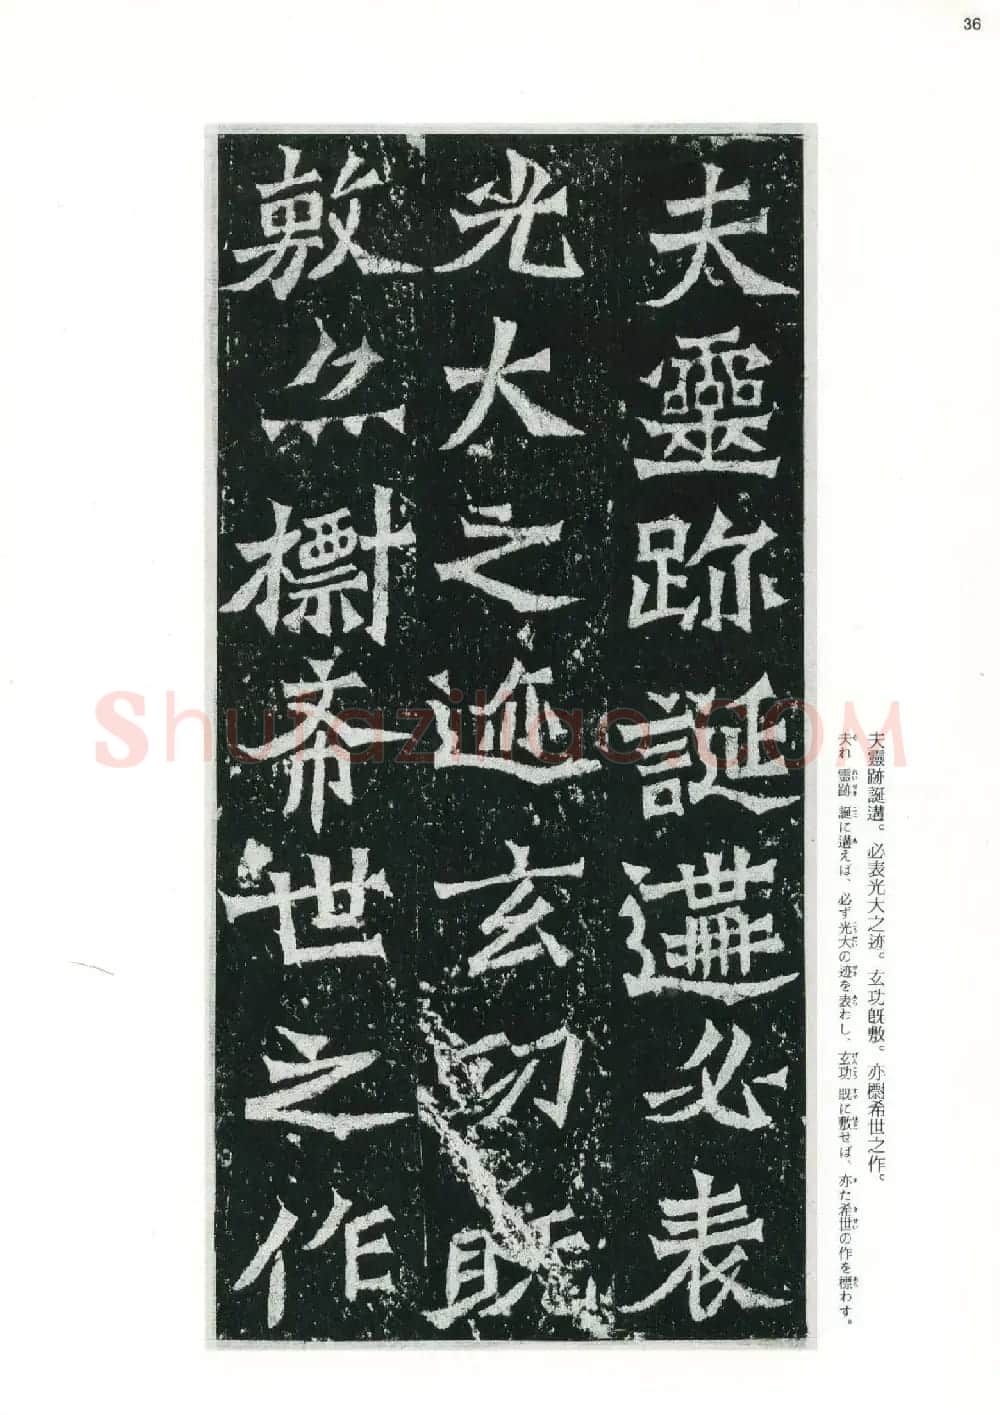 36
夫靈跡誕遘必表
光大之迹玄功既
敷亦𣚦希世之作
夫靈跡誕遘。必表光大之迹。玄功既敷。亦𣚦希世之作。
夫れ靈跡 誕に遘えば、必ず光大の迹を表わし、玄功 既に敷せば、亦た希世の作を標わす。
Shufaziliao.COM